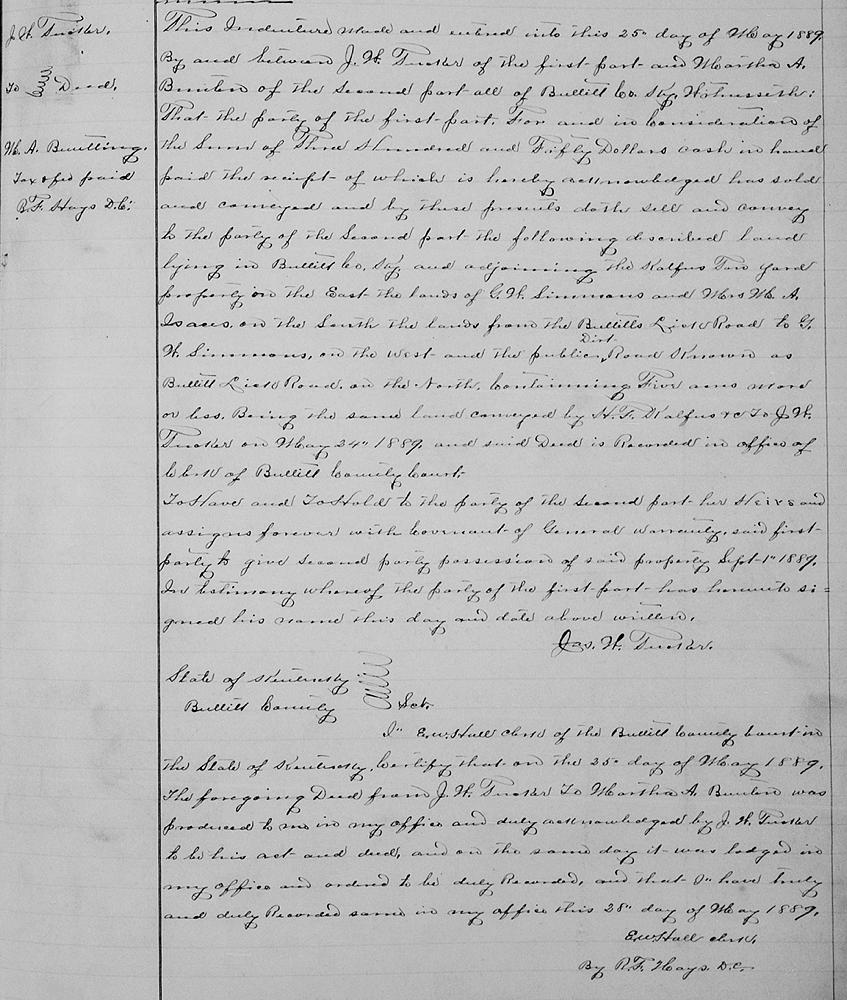 J. H. Tucker,
To Deed,
M. A. Buntting.
Tax & fee paid
R. F. Hays D.C.
This Indenture Made and entered into this 25" day of May 1889.
By and between J. H. Tucker of the first part and Martha A.
Bunten of the Second part all of Bullitt Co. Ky. Witnesseth:
That the party of the first part, For and in Consideration of
the Sum of Three Hundred and Fifty Dollars cash in hand
paid the receipt of which is hereby acknowledged has sold
and conveyed and by these presents doth sell and convey
to the party of the Second part the following described land
lying in Bullitt Co. Ky. and adjoining the Kalfus Tan yard
property on the East the lands of G. H. Simmons and Mrs M. A.
Isaces, on the South the lands from the Bullitts Lick Road to G.
H. Simmons, on the west and the public Dirt Road Known as
Bullitt Lick Road, on the North, Containing Five acres more
or less. Being the same land conveyed by H. F. Kalfus &c To J. H.
Tucker on May 24" 1889, and said Deed is Recorded in office of
Clerk of Bullitt County Court.
To Have and To Hold to the party of the Second part her Heirs and
assigns forever with Covenant of General Warranty, said first
party to give second party possession of said property Sept 1" 1889.
In testimony whereof the party of the first part has hereunto si=
gned his name this day and date above written.
Jas. H. Tucker.
State of Kentucky
Bullitt County Sct.
I" E. W. Hall clerk of the Bullitt County Court in
the State of Kentucky, Certify that on the 25" day of May 1889.
The foregoing Deed from J. H. Tucker To Martha A. Bunten was
produced to me in my office and duly acknowledged by J. H. Tucker
to be his act and deed, and on the same day it was lodged in
my office and ordered to be duly Recorded, and that I" have truly
and duly Recorded same in my office this 28" day of May 1889.
E. W. Hall clerk.
By R. F. Hays. D.C.